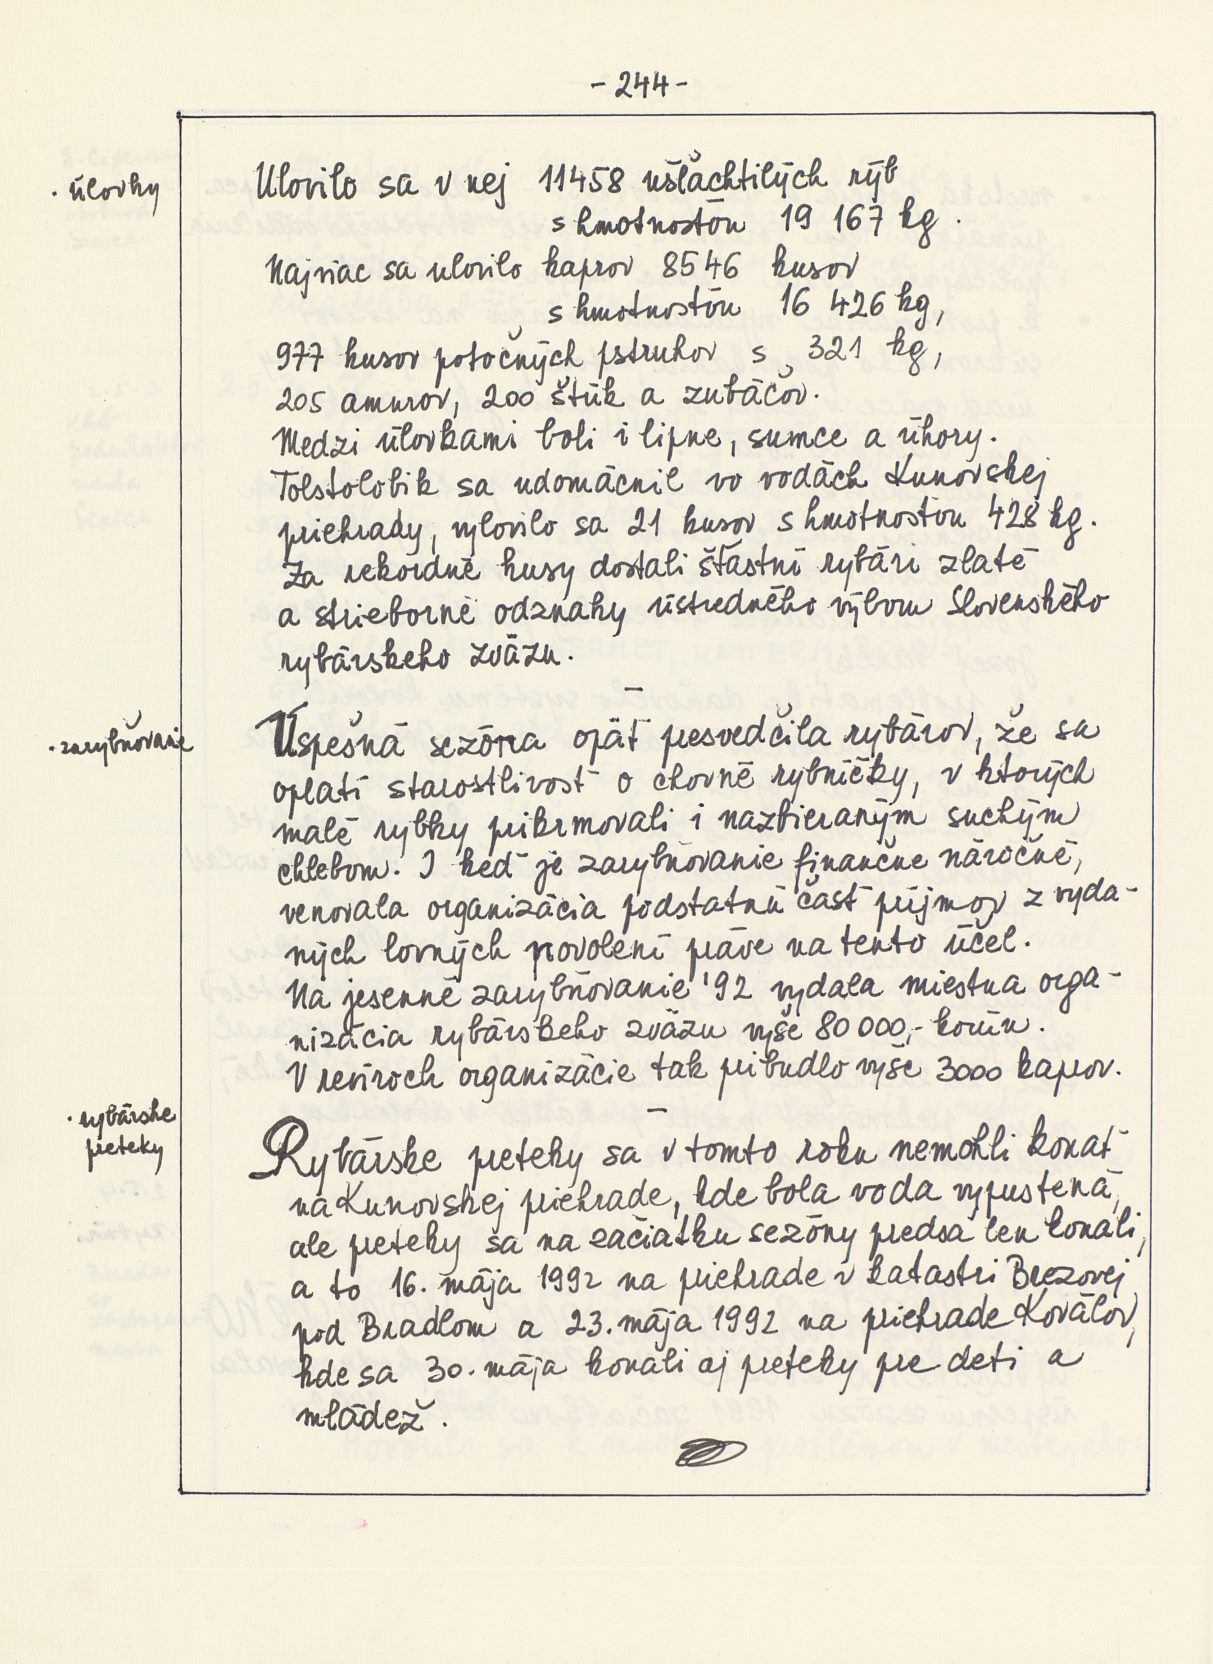 - 244 -
· úlovky
Ulovilo sa v nej 11458 ušľachtilých rýb
s hmotnosťou 19 167 kg.
Najviac sa ulovilo kaprov 8546 kusov
s hmotnosťou 16 426 kg,
977 kusov potočných pstruhov s 321 kg,
205 amurov, 200 štúk a zubáčov.
Medzi úlovkami boli i lipne, sumce a úhory.
Tolstolobik sa udomácnil vo vodách Kunovskej
priehrady, vylovilo sa 21 kusov s hmotnosťou 428 kg.
Za rekordné kusy dostali šťastní rybári zlaté
a strieborné odznaky ústredného výboru Slovenského
rybárskeho zväzu.
—
· zarybňovanie
Úspešná sezóna opäť presvedčila rybárov, že sa
oplatí starostlivosť o chovné rybníčky, v ktorých
malé rybky prikrmovali i nazbieraným suchým
chlebom. I keď je zarybňovanie finančne náročné,
venovala organizácia podstatnú časť príjmov z vyda-
ných lovných povolení práve na tento účel.
Na jesenné zarybňovanie '92 vydala miestna orga-
nizácia rybárskeho zväzu vyše 80 000,- korún.
V revíroch organizácie tak pribudlo vyše 3000 kaprov.
—
· rybárske
preteky
Rybárske preteky sa v tomto roku nemohli konať
na Kunovskej priehrade, kde bola voda vypustená,
ale preteky sa na začiatku sezóny predsa len konali,
a to 16. mája 1992 na priehrade v katastri Brezovej
pod Bradlom a 23. mája 1992 na priehrade Koválov,
kde sa 30. mája konali aj preteky pre deti a
mládež.